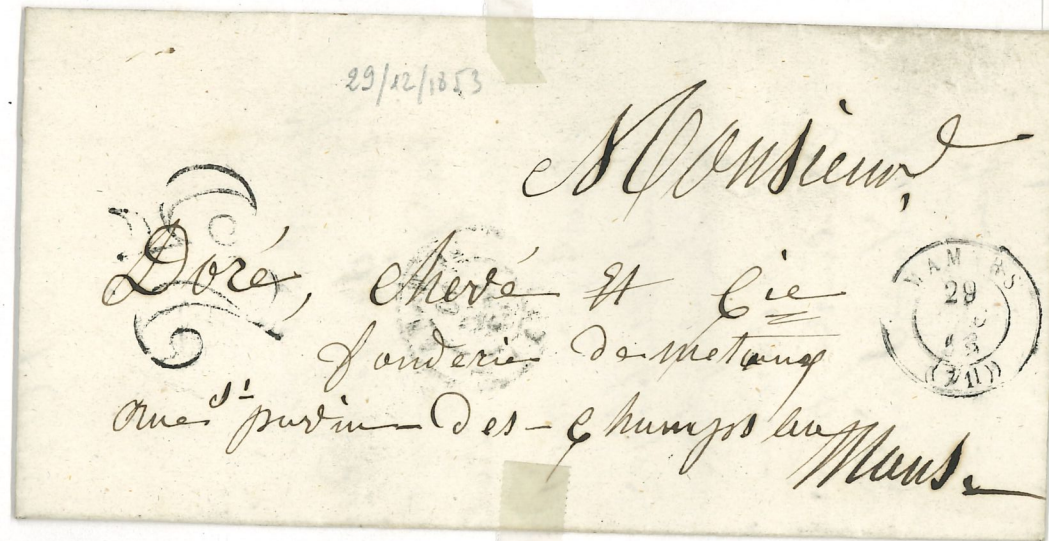 29/12/1853
Monsieur
Doré, chevé et Cie
fonderie de metaux
Rue St pavin des Champs au
Mans
MAMERS
29
(71)